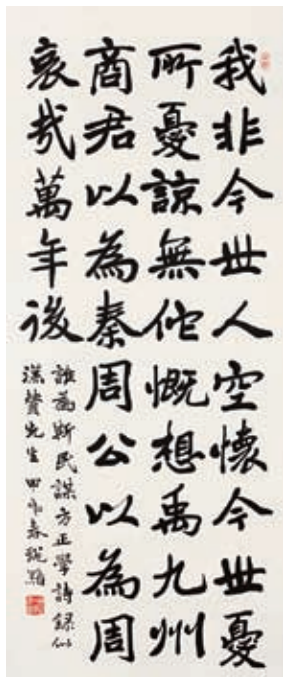 我非今世人空懷今世憂
所憂諒無佗慨想禹九州
商君以為秦周公以為周
哀哉萬年後
誰為斯民謀方正學詩錄似
贊先生甲申春